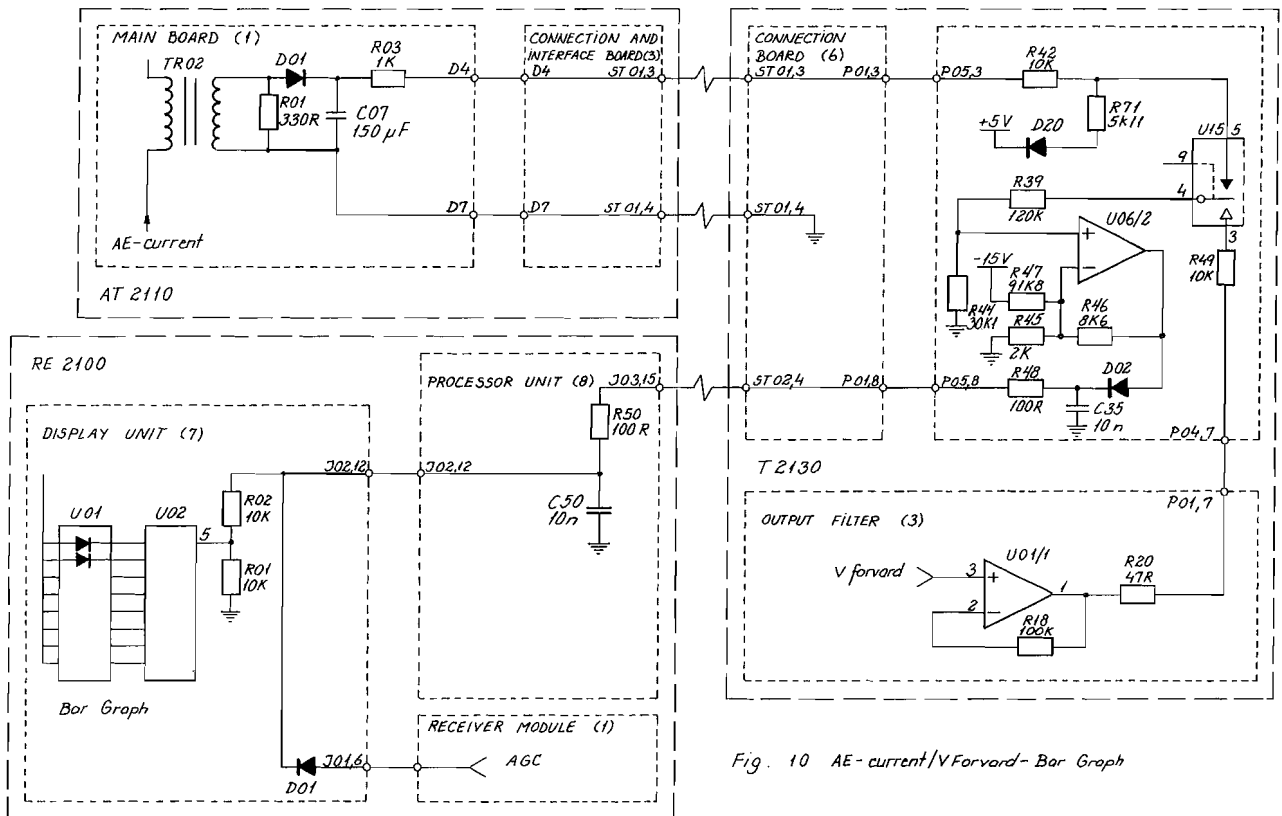 MAIN BOARD (1)
TR02
D01
R03
1K
R01
330R
C07
150 µF
D4
D7
AE-current
AT 2110
CONNECTION AND
INTERFACE BOARD(3)
D4
ST 01,3
D7
ST 01,4
CONNECTION
BOARD (6)
ST 01,3
P01,3
ST 01,4
ST 02,4
P01,8
P05,3
R42
10K
R71
5K11
+5V
D20
U15
5
9
4
3
R39
120K
U06/2
+
−
-15V
R47
91K8
R44
30K1
R45
2K
R46
8K6
R49
10K
P05,8
R48
100R
D02
C35
10n
P04,7
T 2130
P01,7
OUTPUT FILTER (3)
V forvard
U01/1
3
+
2
−
1
R18
100K
R20
47R
RE 2100
PROCESSOR UNIT (8)
J03,15
R50
100R
J02,12
C50
10n
DISPLAY UNIT (7)
J02,12
U01
U02
5
R02
10K
R01
10K
Bar Graph
D01
J01,6
RECEIVER MODULE (1)
AGC
Fig. 10 AE-current/V Forvard-Bar Graph